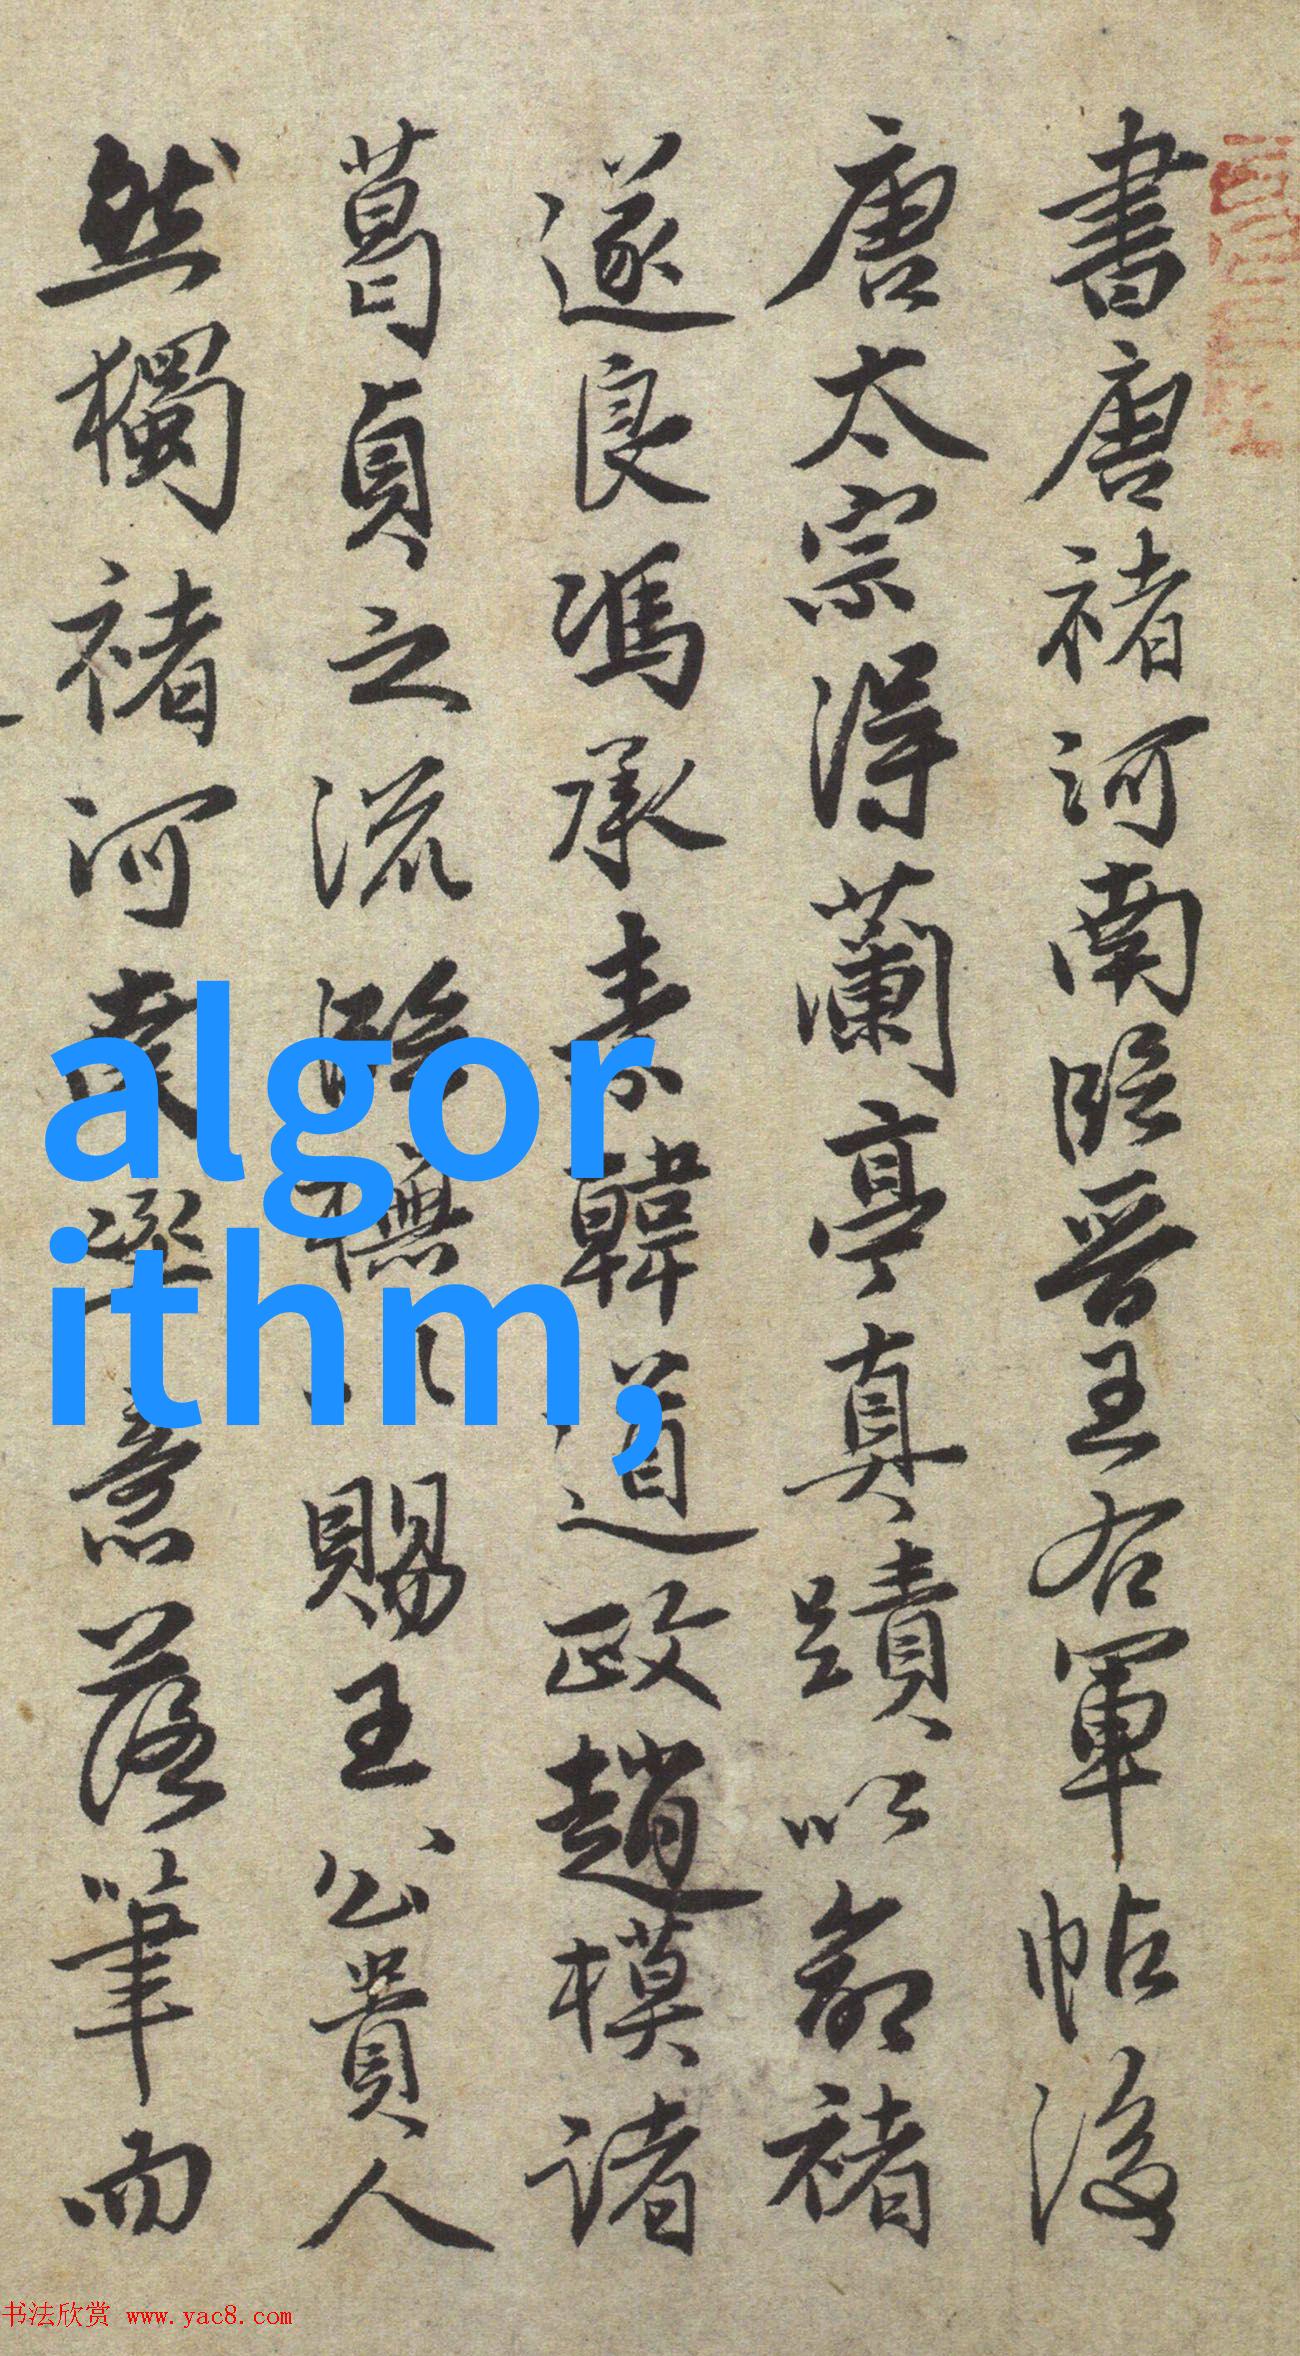 書唐褚河南臨晉王右軍帖後
唐太宗得蘭亭真蹟以命褚
遂良馮承素韓道政趙模諸
葛貞之流臨賜王公貴人
然獨褚河南意落筆而
algor
ithm,
书法欣赏 www.yac8.com